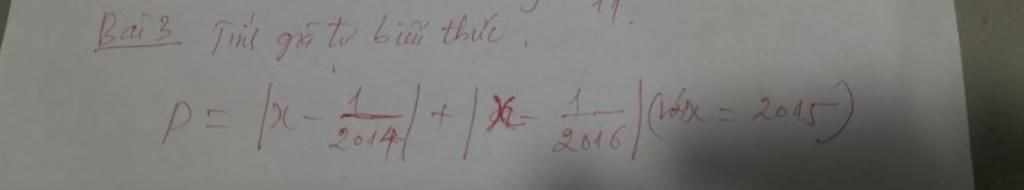 Bài 3 Tính giá trị biểu thức.
P = |x - 1/2014| + |x - 1/2016| (với x = 2015)